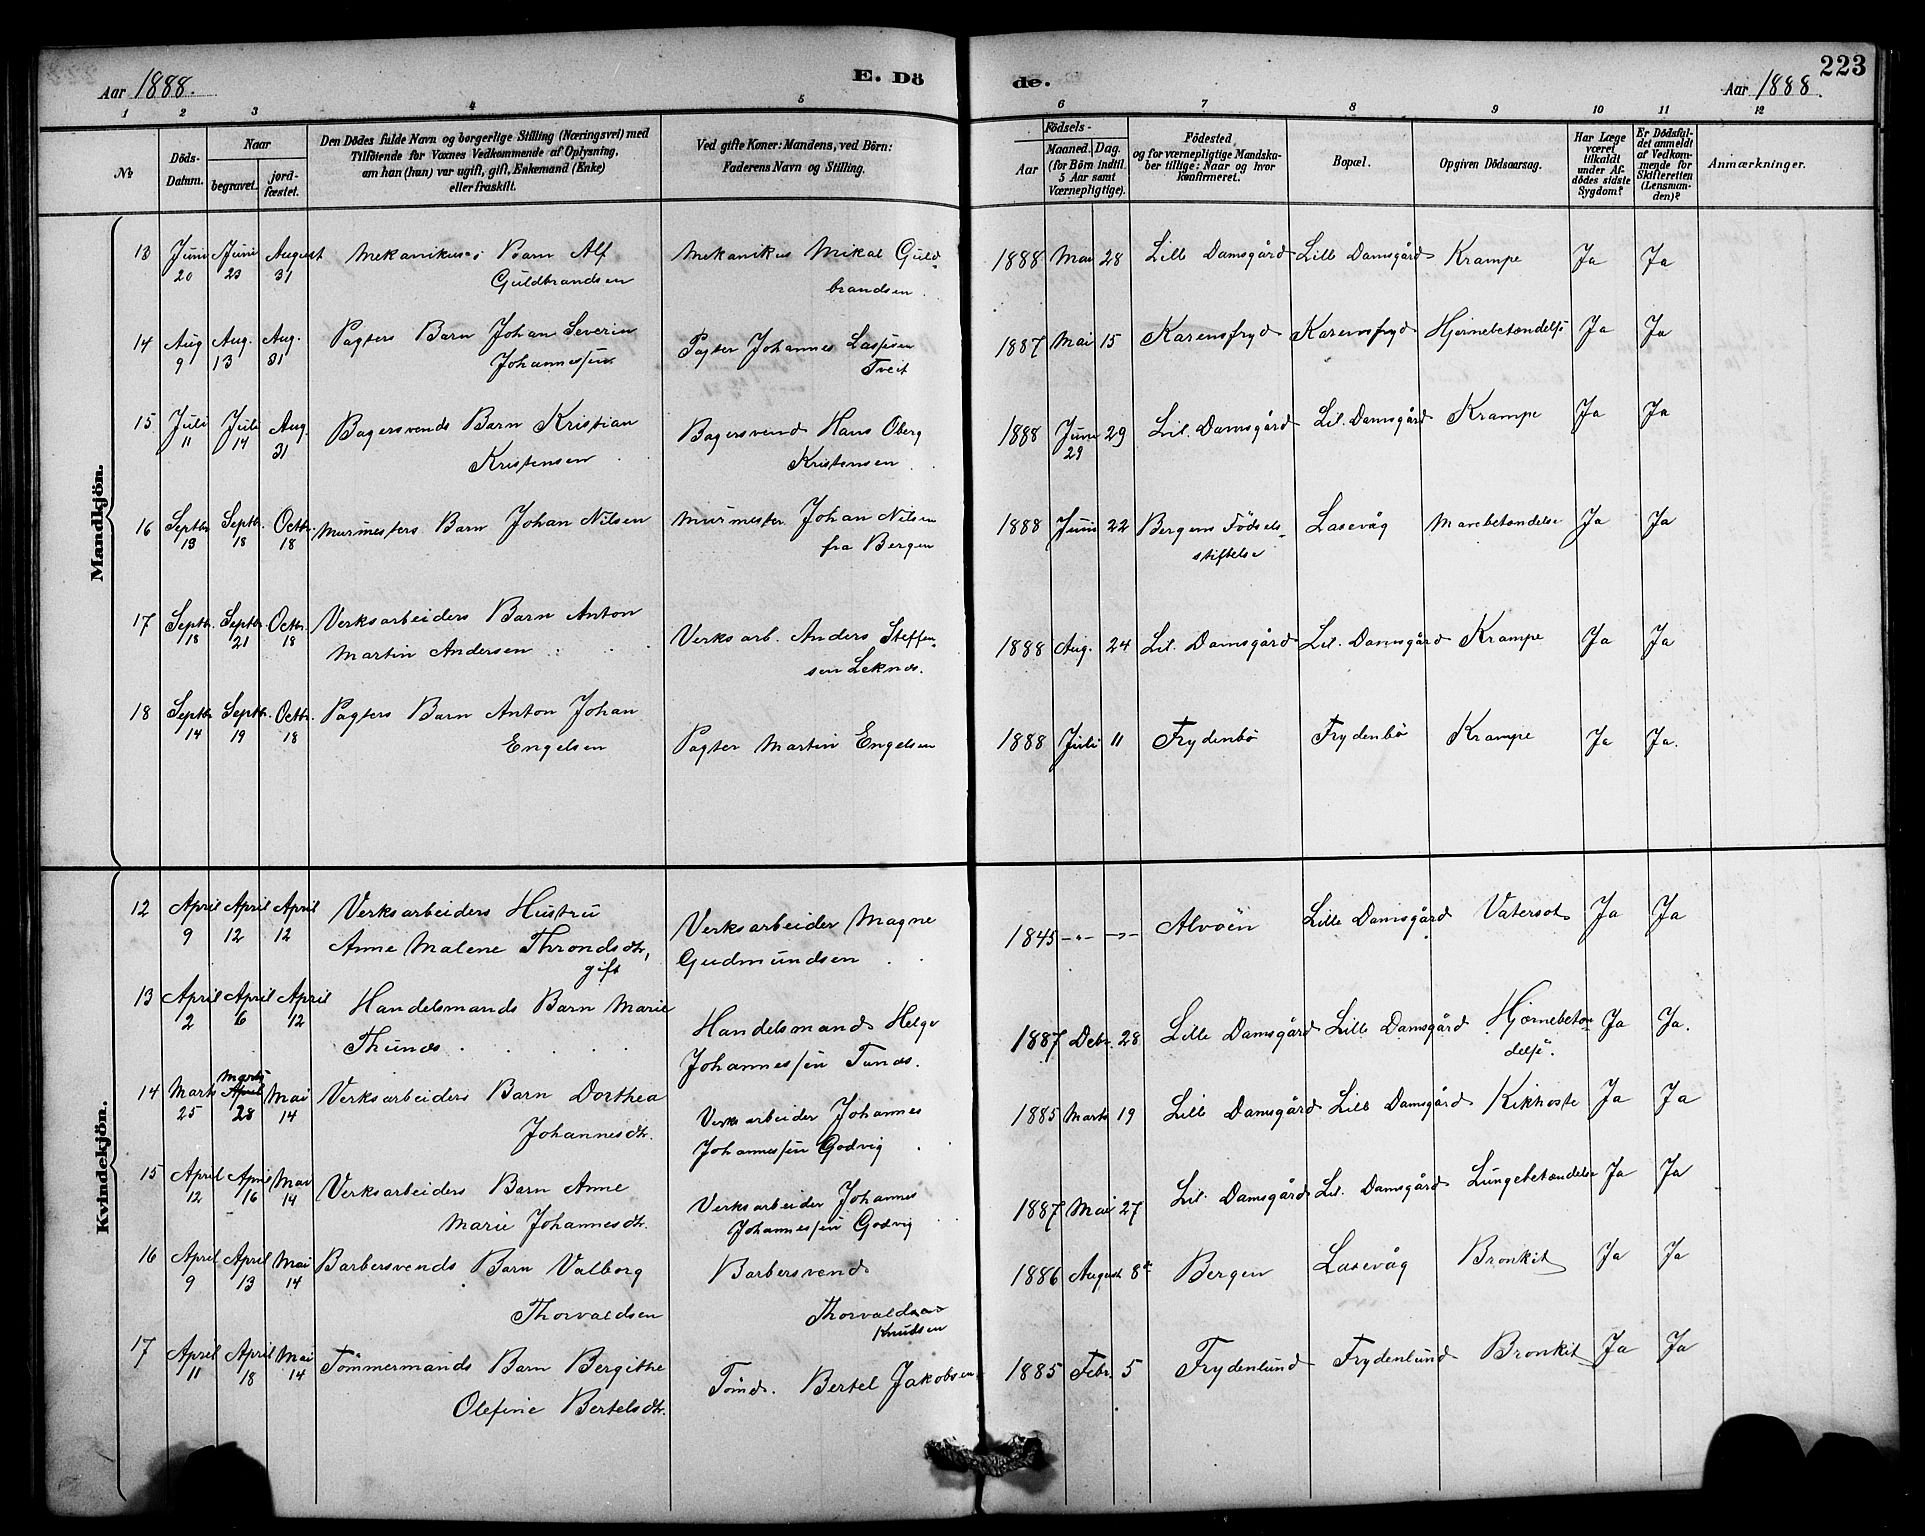 223
Aar 1888. E. Dö de. Aar 1888.
1 2 3 4 5 6 7 8 9 10 11 12
№
Döds-
Datum.
Naar
begravet.
jord-
fæstet.
Den Dödes fulde Navn og borgerlige Stilling (Næringsvei) med
Tilföiende for Voxnes Vedkommende af Oplysning,
om han (hun) var ugift, gift, Enkemand (Enke)
eller fraskilt.
Ved gifte Koner: Mandens, ved Börn:
Faderens Navn og Stilling.
Födsels-
Aar
Maaned. Dag.
(for Börn indtil
5 Aar samt
Værnepligtige).
Födested,
og for værnepligtige Mandska-
ber tillige: Naar og hvor
konfirmeret.
Bopæl.
Opgiven Dödsaarsag.
Har Læge
været
tilkaldt
under Af-
dödes sidste
Sygdom?
Er Dödsfal-
det anmeldt
af Vedkom-
mende for
Skifteretten
(Lensman-
den)?
Anmærkninger.
Mandkjön.
13 Juni 20 Juni 23 August 31 Mekanikus's Barn Alf
Guldbrandsen
Mekanikus Mikal Guld-
brandsen.
1888 Mai 28 Lille Damsgård Lille Damsgård Krampe Ja Ja
14 Aug 9 Aug. 13 Aug. 31 Pagters Barn Johan Severin
Johannessen
Pagter Johannes Laspsen
Tveit
1887 Mai 15 Karensfryd Karensfryd Hjernebetændelse Ja Ja
15 Juli 11 Juli 14 Aug. 31 Bagersvends Barn Kristian
Kristensen
Bagersvend Hans Oberg
Kristensen
1888 Juni 29 29 Lil. Damsgård Lil. Damsgård Krampe Ja Ja
16 Septbr. 13 Septbr. 18 Octbr. 18 Murmesters Barn Johan Nilsen
Murmester Johan Nilsen
fra Bergen
1888 Juni 22 Bergens Födsels-
stiftelse
Laxevåg Mavebetændelse Ja Ja
17 Septbr. 18 Septbr. 21 Octbr. 18 Verksarbeiders Barn Anton
Martin Andersen
Verksarb. Anders Steffen-
sen Leknes.
1888 Aug. 24 Lil. Damsgård Lil. Damsgård Krampe Ja Ja
18 Septbr 14 Septbr. 19 Octbr. 18 Pagters Barn Anton Johan
Engelsen
Pagter Martin Engelsen
1888 Juli 11 Frydenbö Frydenbö Krampe Ja Ja.
Kvindekjön.
12 April 9 April 12 April 12 Verksarbeiders Hustru
Anne Malene Throndsdtr,
gift
Verksarbeider Magne
Gudmundsen
1845 -"- -"- Alvöen Lille Damsgård Vatersot Ja Ja
13 April 2 April 6 April 12 Handelsmands Barn Marie
Thunds
Handelsmand Helge
Johannessen Tunds.
1887 Debr. 28 Lille Damsgård Lille Damsgård Hjernebetæn-
delse.
Ja Ja.
14 Marts 25 Marts April 28 Mai 14 Verksarbeiders Barn Dorthea
Johannesdtr.
Verksarbeider Johannes
Johannessen Godvig
1885 Marts 19 Lille Damsgård Lille Damsgård Kikhoste Ja Ja
15 April 12 April 16 Mai 14 Verksarbeiders Barn Anne
Marie Johannesdtr.
Verksarbeider Johannes
Johannessen Godvig
1887 Mai 27 Lil. Damsgård Lil. Damsgård Lungebetændelse Ja Ja
16 April 9 April 13 Mai 14 Barbersvends Barn Valborg
Thorvaldsen
Barbersvend
Thorvald
Knudsen
1886 August 8de Bergen Laxevåg Bronkit Ja Ja
17 April 11 April 18 Mai 14 Tömmermands Barn Bergithe
Olefine Bertelsdtr.
Tömd. Bertel Jakobsen
1885 Febr. 5 Frydenlund Frydenlund Bronkit Ja Ja